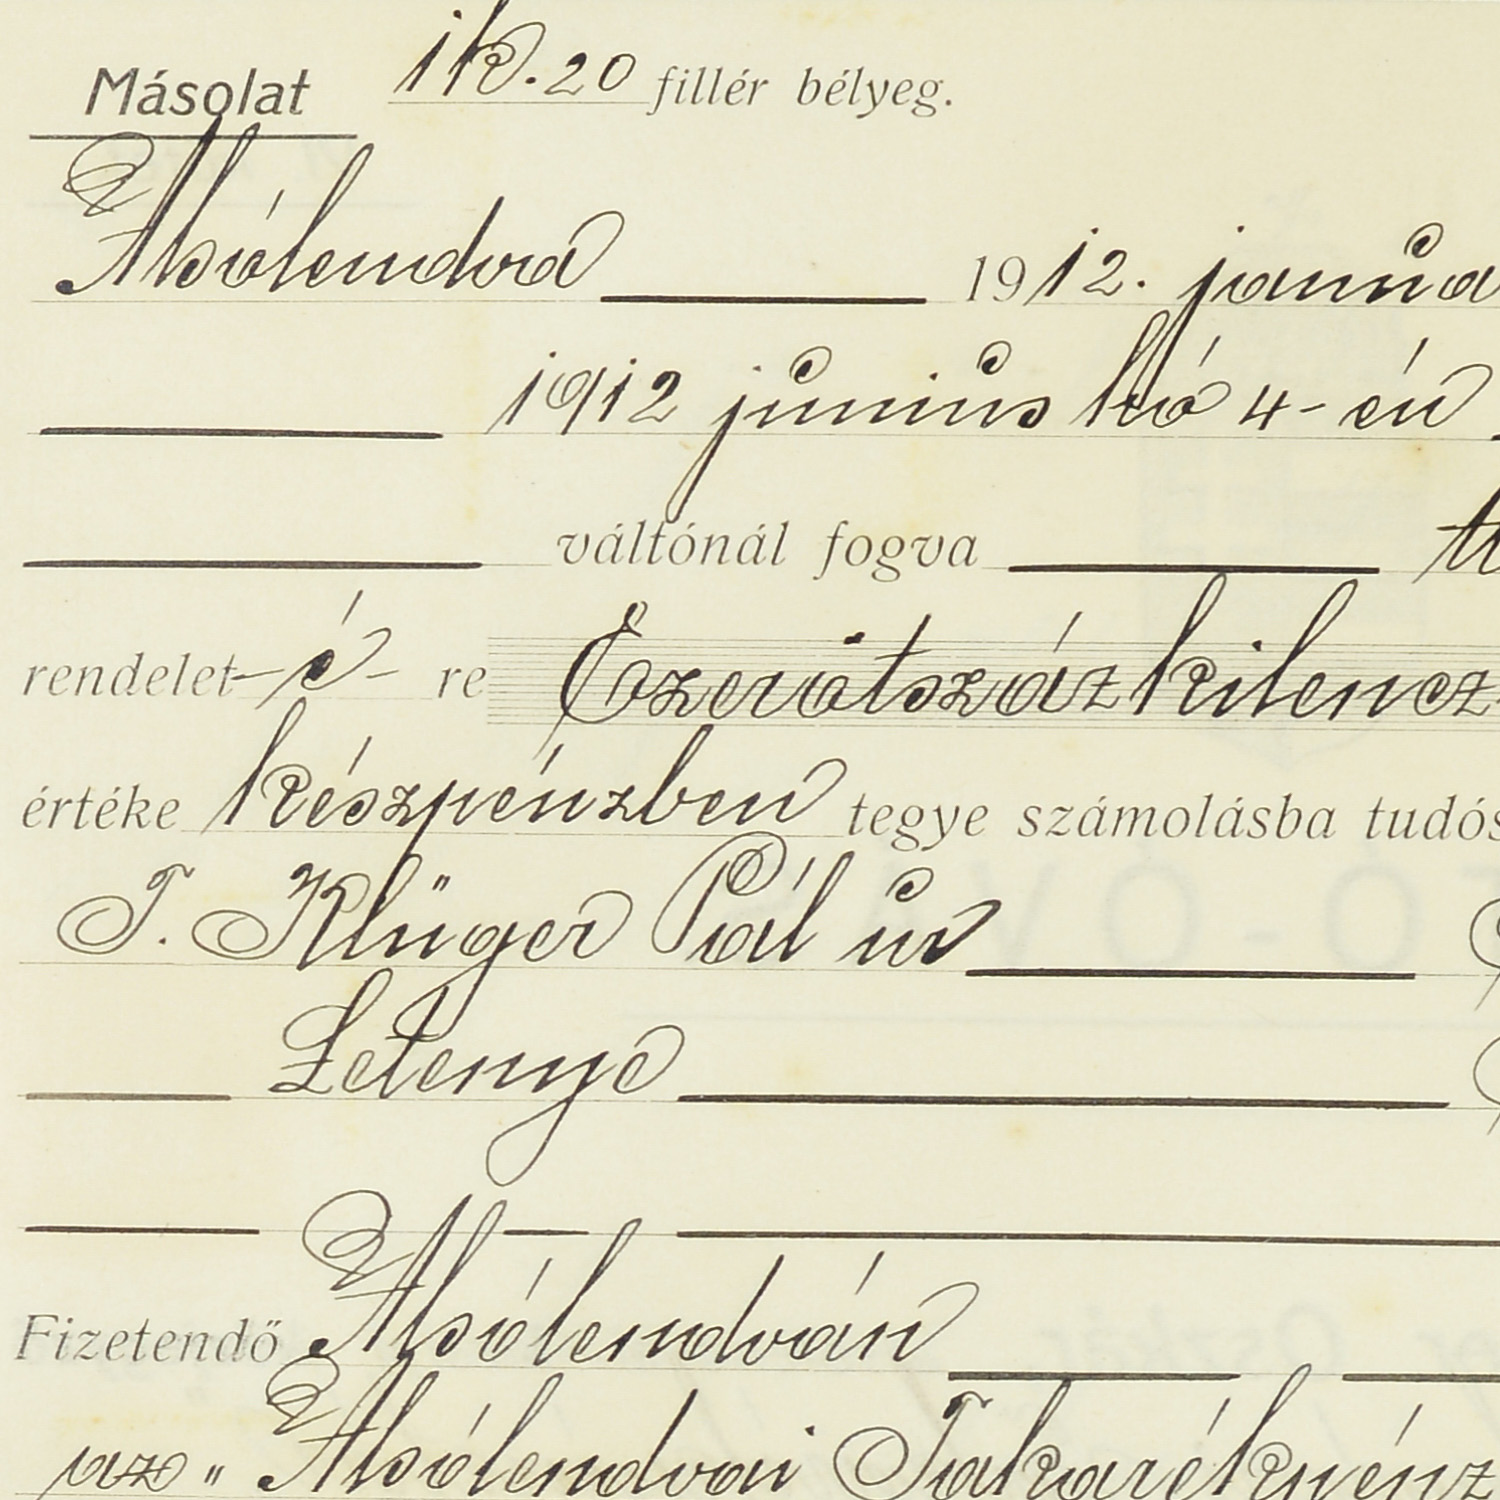 Másolat 1 K. 20 fillér bélyeg.
Alsólendva 1912. januá
1912 június hó 4-én
váltónál fogva
rendelet-é- re Ezerötszázkilencz
értéke készpénzben tegye számolásba tudós
T. Klüger Pál úr
Letenye
Fizetendő Alsólendván
az „Alsólendvai Takarékpénz